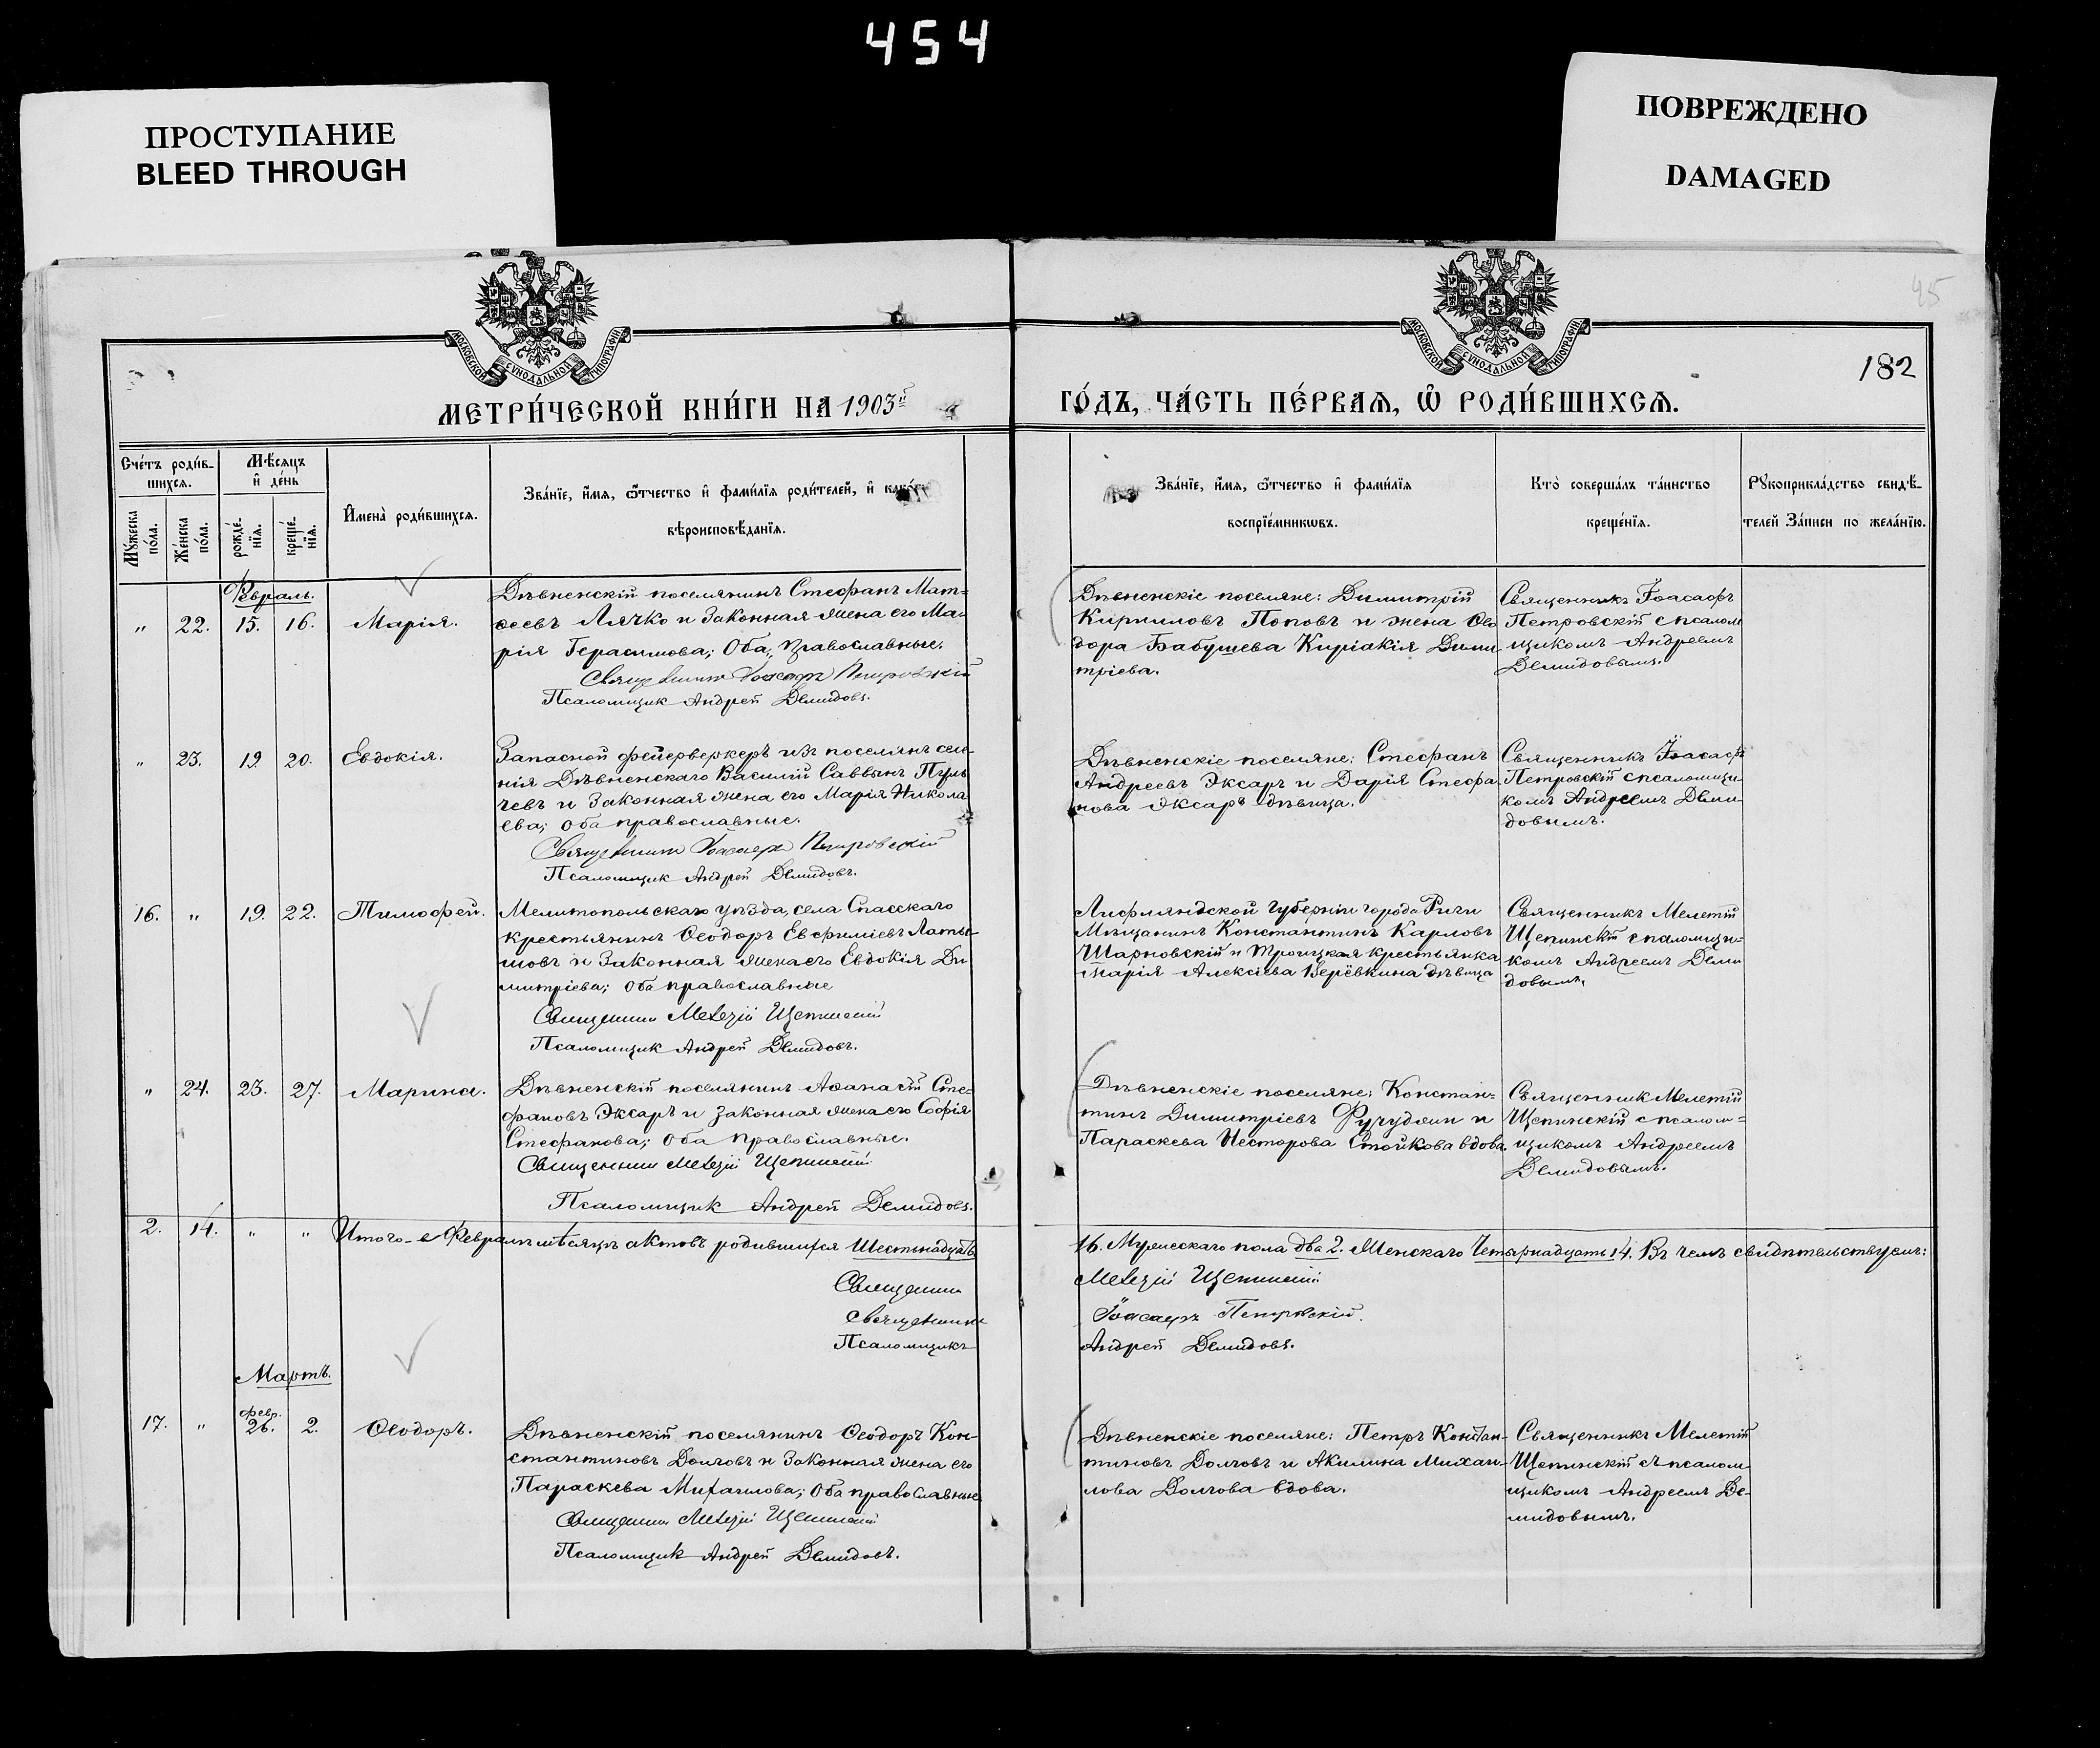 454
ПРОСТУПАНИЕ
BLEED THROUGH
ПОВРЕЖДЕНО
DAMAGED
45
МОСКОВСКОЙ СѴНОДАЛЬНОЙ ТИПОГРАФІИ
МОСКОВСКОЙ СѴНОДАЛЬНОЙ ТИПОГРАФІИ
182
МЕТРИ́ЧЕСКОЙ КНИ́ГИ НА 1903й
ГО́ДЪ, ЧА́СТЬ ПЕ́РВАѦ, Ѡ҆ РОДИ́ВШИХСѦ.
Сче́тъ роди́в-
шихсѧ.
Мѣ́сѧцъ
и҆ де́нь
Мꙋ́жеска
по́ла.
Же́нска
по́ла.
рожде́-
нїѧ.
креще́-
нїѧ.
И҆мена̀ роди́вшихсѧ.
Зва́нїе, и҆́мѧ, ѻ҆́тчество и҆ фами́лїѧ роди́телей, и҆ како́гѡ
вѣроисповѣ́данїѧ.
Зва́нїе, и҆́мѧ, ѻ҆́тчество и҆ фами́лїѧ
воспрїе́мникѡвъ.
Кто̀ соверша́лъ та́инство
креще́нїѧ.
Рꙋкоприкла́дство свидѣ́-
телей За́писи по жела́нїю.
Февраль.
" 22. 15. 16. Марія.
Дѣвненскій поселянинъ Стефанъ Мат-
ѳеевъ Лячко и законная жена его Ма-
рія Герасимова; Оба православные.
Священникъ Іоасафъ Петровскій
Псаломщик Андрей Демидовъ.
Дѣвненскіе поселяне: Димитрій
Кирилловъ Поповъ и жена Ѳео
дора Бабушева Киріакія Дими-
тріева.
Священникъ Іоасафъ
Петровскій с псалом
щикомъ Андреемъ
Демидовымъ.
" 23. 19. 20. Евдокія.
Запасной фейерверкеръ изъ поселянъ селе-
нія Дѣвненскаго Василій Саввынъ Пуль
чевъ и законная жена его Марія Никола
ева; Оба православные.
Священникъ Іоасафъ Петровскій
Псаломщик Андрей Демидовъ.
Дѣвненскіе поселяне: Стефанъ
Андреевъ Эксаръ и Дарія Стефа-
нова Эксаръ дѣвица.
Священникъ Іоасафъ
Петровскій с псаломщи-
комъ Андреемъ Деми-
довымъ.
16. " 19. 22. Тимофей.
Мелитопольскаго уѣзда, села Спасскаго
крестьянинъ Ѳеодоръ Евфиміевъ Латы-
шовъ и законная жена его Евдокія Ди
митріева; Оба православные
Священникъ Мелетій Щепинскій
Псаломщик Андрей Демидовъ.
Лифляндской губерніи города Риги
Мѣщанинъ Константинъ Карловъ
Шарновскій и Троицкая крестьянка
Марія Алексіева Верёвкина дѣвица
Священникъ Мелетій
Щепинскій с псаломщи-
комъ Андреемъ Деми
довымъ.
" 24. 23. 27. Марина.
Дѣвненскій поселянинъ Аѳанасій Сте-
фановъ Эксаръ и законная жена его Софія
Стефанова; Оба православные.
Священникъ Мелетій Щепинскій
Псаломщик Андрей Демидовъ.
Дѣвненскіе поселяне: Констан-
тинъ Димитріевъ и
Параскева Несторова Стойкова вдова.
Священник Мелетій
Щепинскій с псалом-
щикомъ Андреемъ
Демидовымъ.
2. 14. " " Итого в Февралѣ мѣсяцѣ актовъ родившихся Шестнадцать
16. Мужескаго пола два 2. Женскаго Четырнадцать 14. Въ чемъ свидѣтельствуемъ:
Священникъ Мелетій Щепинскій
Священникъ Іоасафъ Петровскій.
Псаломщикъ Андрей Демидовъ.
Мартъ.
17. " февр. 26. 2. Ѳеодоръ.
Дѣвненскій поселянинъ Ѳеодоръ Кон-
стантиновъ Долговъ и законная жена его
Параскева Михаилова; Оба православные.
Священникъ Мелетій Щепинскій
Псаломщик Андрей Демидовъ.
Дѣвненскіе поселяне: Петръ Констан-
тиновъ Долговъ и Акилина Михаи-
лова Долгова вдова.
Священникъ Мелетій
Щепинскій съ псалом
щикомъ Андреемъ Де-
мидовымъ.